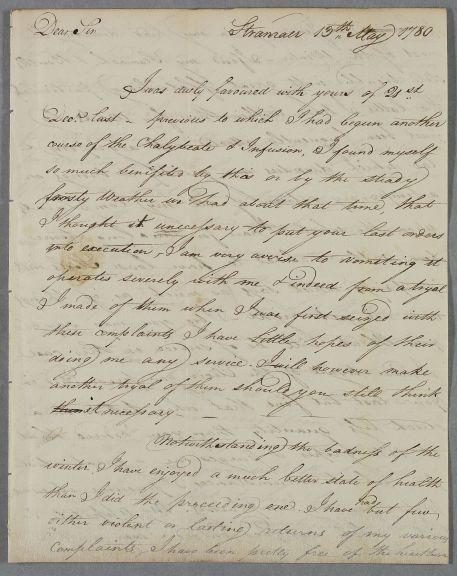 Dear Sir Stranraer 13th May 1780
I was duly favoured with yours of 21st
Decr. last - previous to which I had begun another
course of the Chalybeate & Infusion, & found myself
so much benifited by this or by the steady
frosty Weather we had about that time, that
I thought it unecessary to put your last orders
into execution, I am very averse to vomiting it
operates severely with me & indeed from a tryal
I made of them when I was first seized with
these complaints I have little hopes of their
doing me any service. I will however make
another tryal of them should you still think
it necessary.
Notwithstanding the badness of the
winter I have enjoyed a much better state of health
than I did the preceeding one. I have had but few
either violent or lasting returns of my various
complaints, I have been pretty free of the